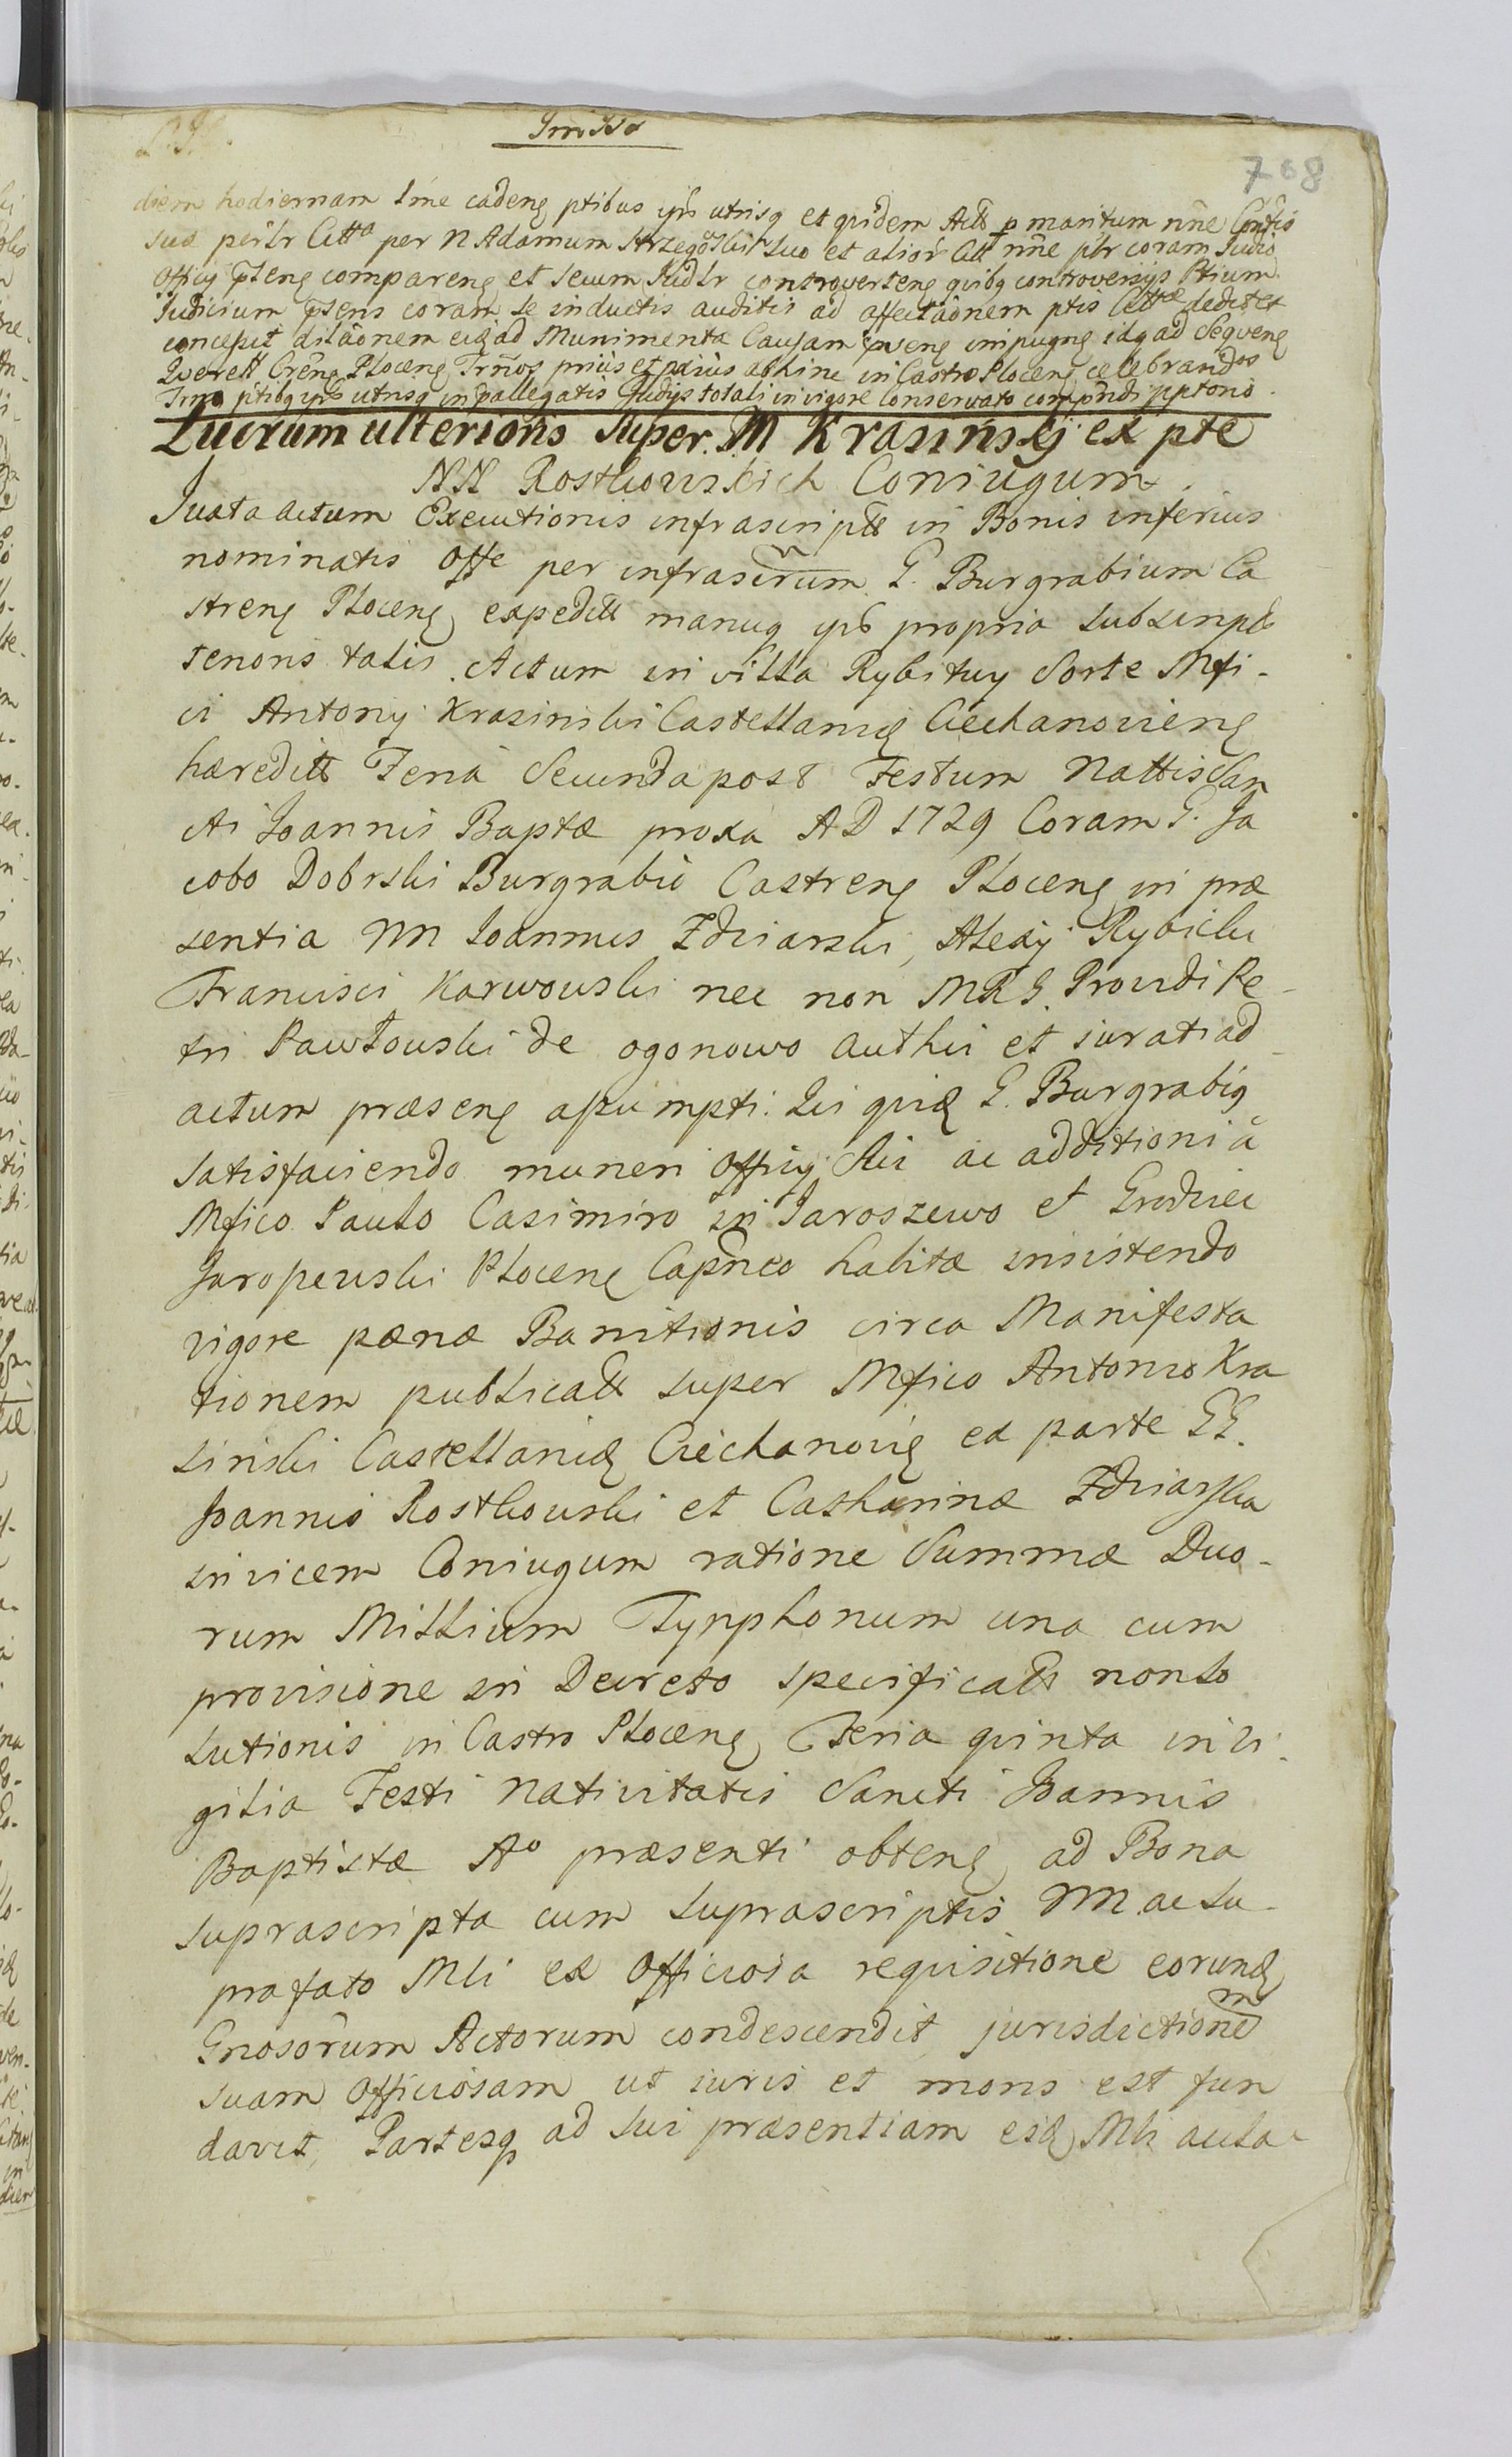 Imissa
708
diem hodiernam sine cadeng ptibus ipis utrisq et quidem Actt p maritum nne
sua per Citta per N Adamum Strzegoski suo et alior Citt nne coram Judio
Officy pnteng compareng et secum Judlr controverteng quibq controversijs Ptium
Judicium pntens coram se inductis auditis ad affectaonem ptis Cittae dedit et
concessit dilaonem eidq ad Munimenta Causam impugng idq ad Seqveng
Querell Ploceng Trnos prius et prius abhinc in Castro Ploceng celebrandos
Trno ptibq ipis utrisq in totali in vigore conservato
Lucrum ulterioris super M Krasinskj ex pte
NN Rostkowskich Coniugum
Juxta actum Executionis infrascriptt in Bonis inferius
nominatis Offe per infrascrum G. Burgrabium Ca
streng Ploceng expeditt manuq ips propria subscript
tenoris talis. Actum in villa Rybitwy Sorte Mfi-
ci Antonij Krasinski Castellanidę Ciechanovieng
hæreditt Feria Secunda post Festum Nattis San
cti Joannis Baptæ proxa AD 1729 Coram G. Ja
cobo Dobrski Burgrabio Castreng Ploceng in præ
sentia NN Joannis Zdziarski, Alexij Rybicki
Francisci Karwowski nec non MRG. Providi Pe-
tri Pawłowski de ogonowo authci et jurati ad
actum præseng assumpti. Qui quidę G. Burgrabig
satisfaciendo muneri officij sui ac additioni a
Mfico Paulo Casimiro in Jaroszewo et Grodziec
Jaroszewski Ploceng Capneo habitæ insistendo
vigore pænæ Banitionis circa Manifesta
tionem publicatt super Mfico Antonio Kra
sinski Castellanidę Ciechanovię ex parte GG.
Joannis Rostkowski et Catharinæ Zdziarska
invicem Coniugum ratione Summæ Duo-
rum Millium Tynphonum una cum
provisione in Decreto specificatt nonso
lutionis in Castro Ploceng Feria quinta in vi-
gilia Festi Nativitatis Sancti Joannis
Baptistæ Ao præsenti obteng ad Bona
suprascripta cum suprascriptis NN ac su-
prafato Mli ex Officiosa requisitione eorundę
Gnosorum Actorum condescendit, jurisdictionem
suam Officiosam ut iuris et moris est fun
davit, Partesq ad sui præsentiam eidę Mli aucla-